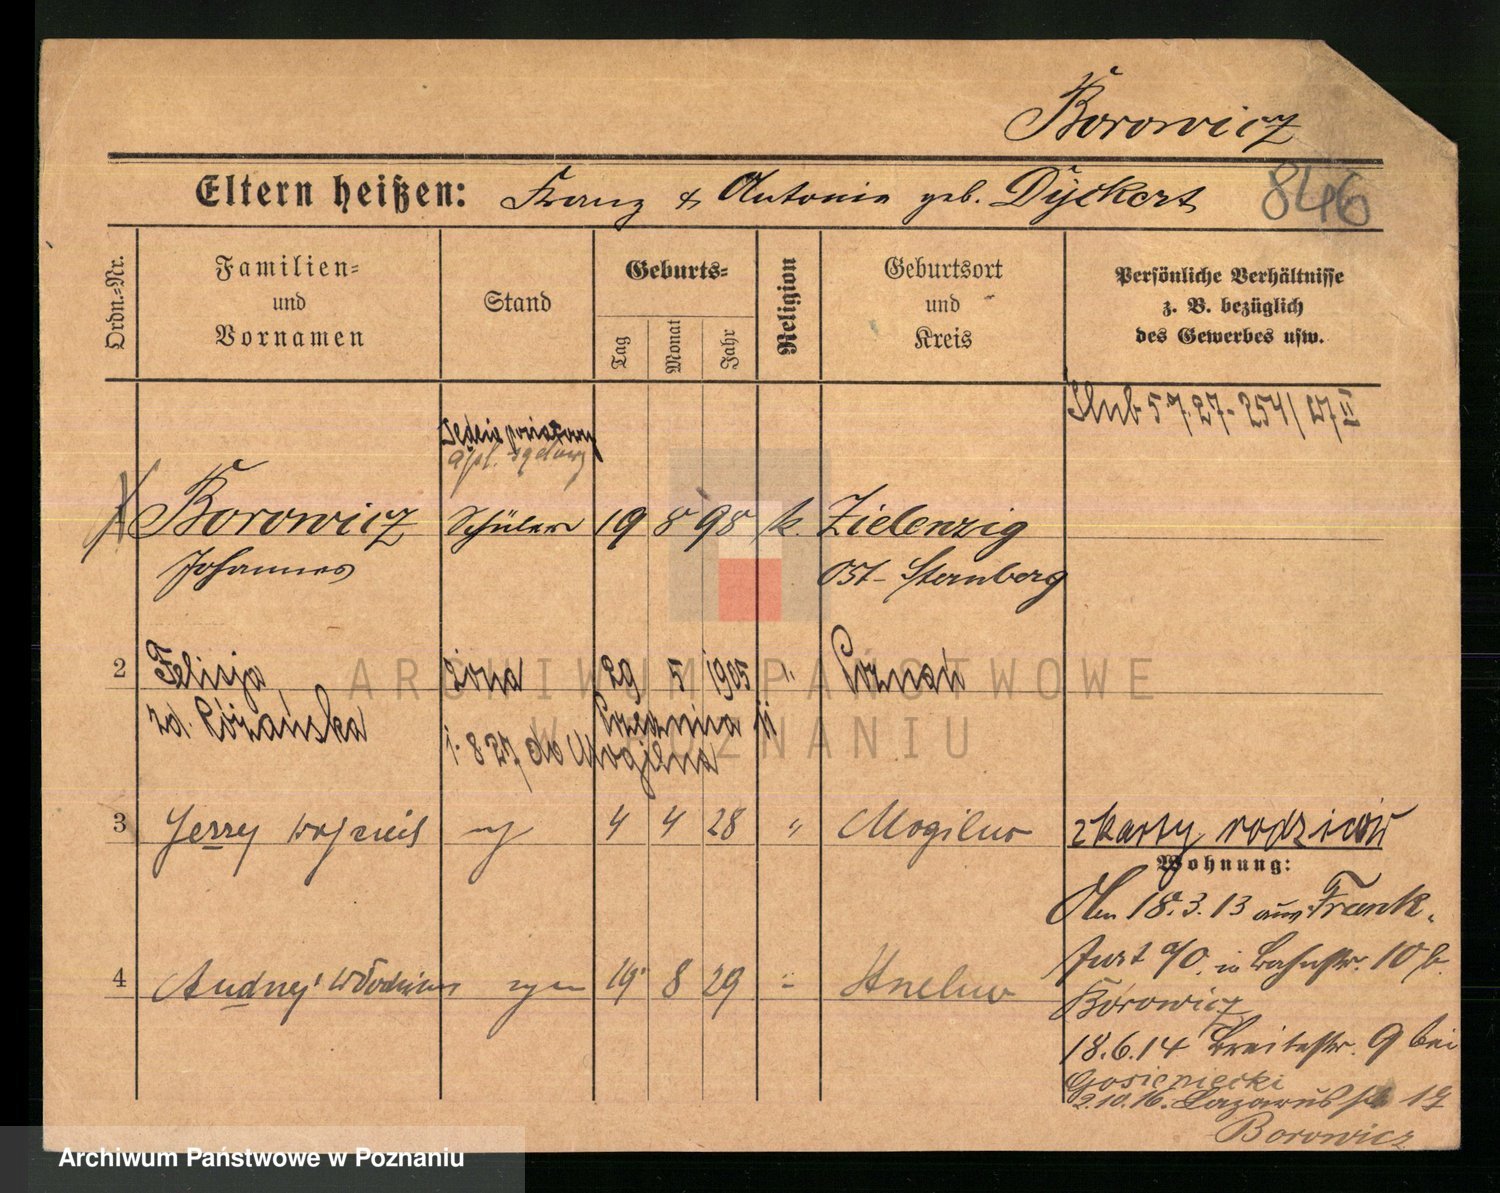 Borowicz
Eltern heißen: Franz & Antonie geb. Dyckert
846
Ordn.-Nr.
Familien-
und
Vornamen
Stand
Geburts-
Tag
Monat
Jahr
Religion
Geburtsort
und
Kreis
Persönliche Verhältnisse
z. B. bezüglich
des Gewerbes usw.
Ślub 5.7.27-254/27 II
apl. sądowy
Borowicz Schüler 19 8 98 k. Zielenzig
Johannes Ost-Sternberg
2 Felicja żona 29 5 1905 " Poznań
zd. Różańska
1.8.27 do Mogilna
3 Jerzy syn 4 4 28 " Mogilno
z karty rodziców
Wohnung:
18.3.13 aus Frank-
furt a/O. in Bahnstr. 10 b.
Borowicz
4 Andrzej syn 19 8 29 "
18.6.14 Breitestr. 9 bei
Gosieniecki
2.10.16. Lazarusstr 17
Borowicz
ARCHIWUM PAŃSTWOWE
W POZNANIU
Archiwum Państwowe w Poznaniu